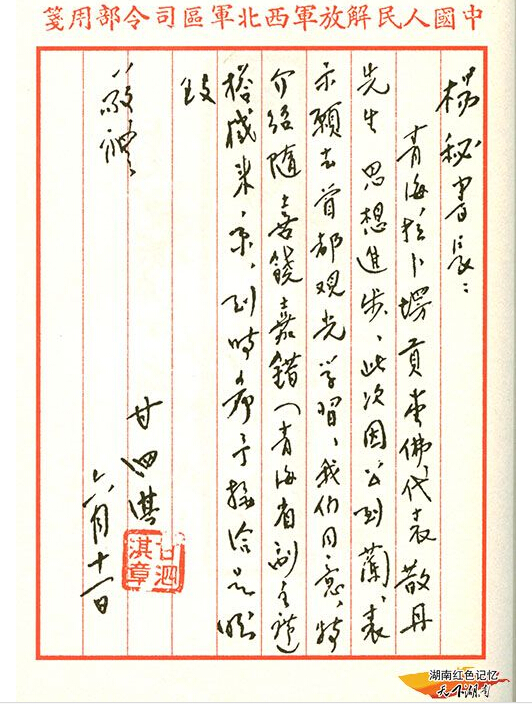 中國人民解放軍西北軍區司令部用箋
杨秘書長：
青海拉卜塄貢唐佛代表敬丹
先生 思想進步、此次因公到蘭、表
示願去首都观光学習、我们同意、特
介绍随喜饒嘉錯（青海省副主席
搭機来京，到時希予接洽是盼
致
敬禮
甘泗淇
甘泗淇章
六月十一日
湖南红色记忆
天下湖南